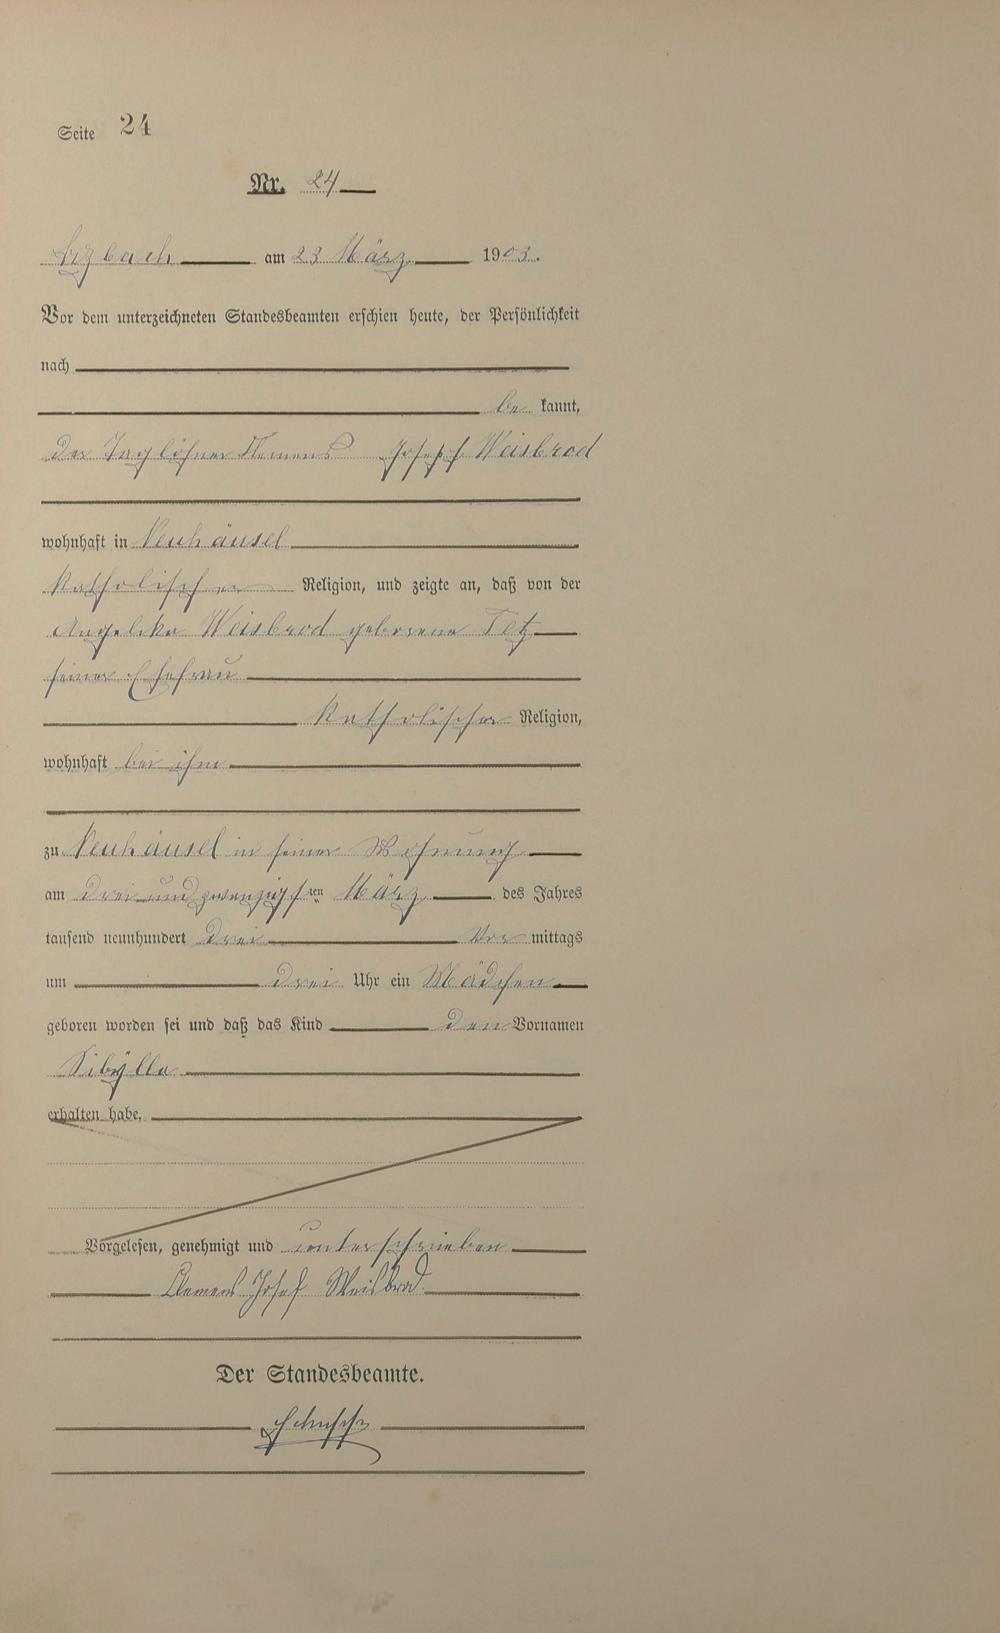 Seite 24
Nr. 24
Arzbach am 23 März 1903.
Vor dem unterzeichneten Standesbeamten erschien heute, der Persönlichkeit
nach
be kannt,
der Taglöhner Klemens Joseph Weisbrod
wohnhaft in Neuhäusel
katholischer Religion, und zeigte an, daß von der
Angelika Weisbrod geborene Tetz
seiner Ehefrau
katholischer Religion,
wohnhaft bei ihm
zu Neuhäusel in seiner Wohnung
am drei und zwanzigsten März des Jahres
tausend neunhundert drei Vor mittags
um drei Uhr ein Mädchen
geboren worden sei und daß das Kind den Vornamen
Sibÿlla
erhalten habe.
Vorgelesen, genehmigt und unterschrieben
Clemens Josef Weisbrod.
Der Standesbeamte.